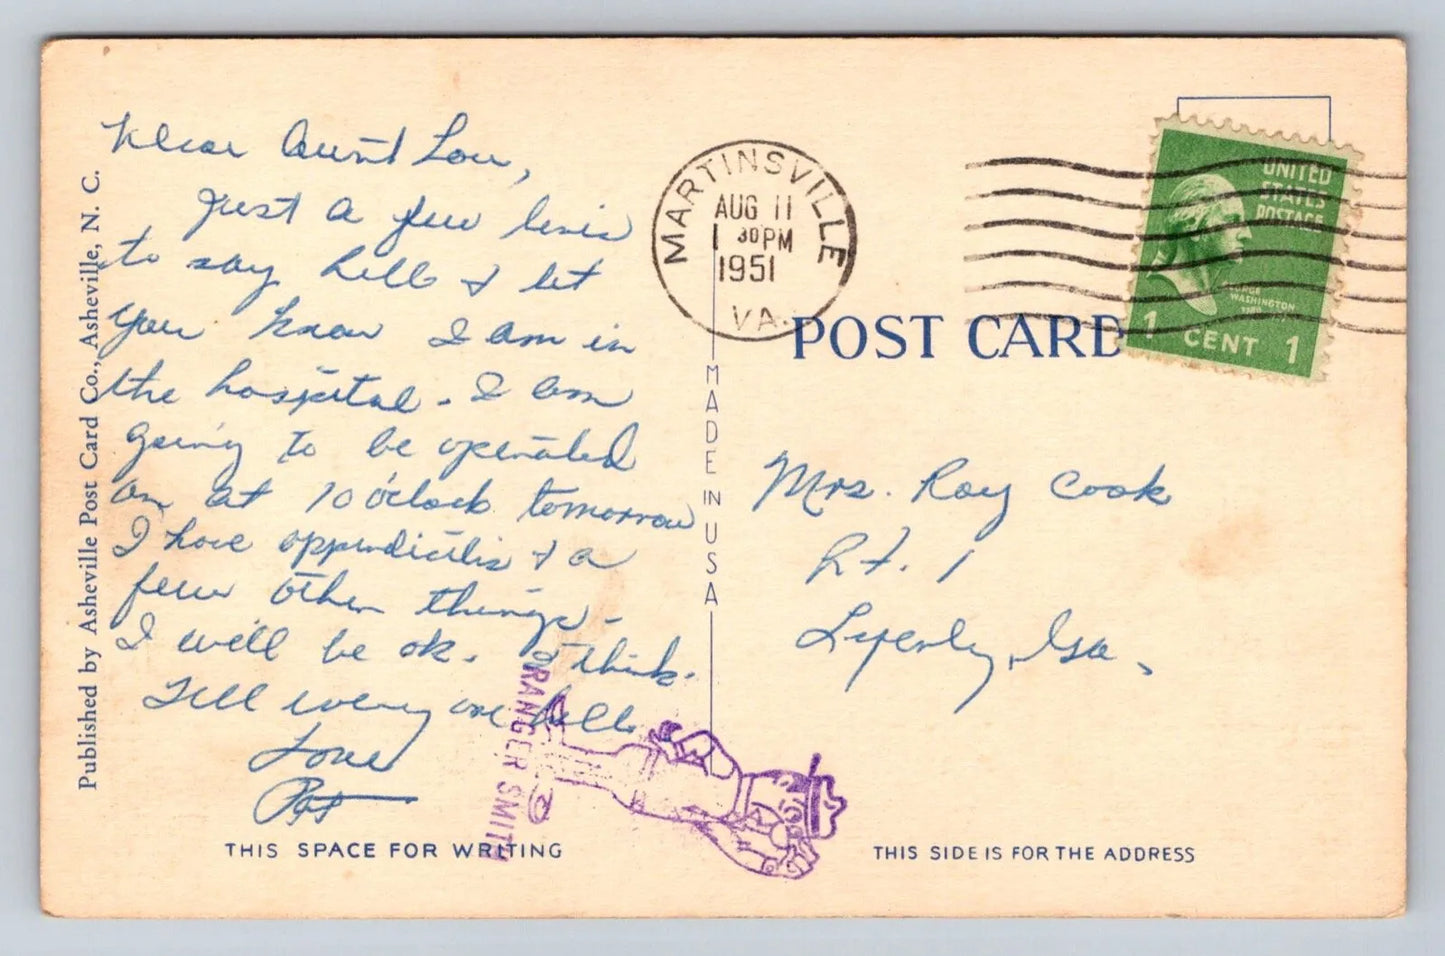 Dear Aunt Lou,
Just a few lines
to say hello & let
you know I am in
the hospital. I am
going to be operated
on at 10 o'clock tomorrow
I have appendicitis & a
few other things.
I will be ok. I think.
Tell every one hello
Love
Pat
THIS SPACE FOR WRITING
Published by Asheville Post Card Co., Asheville, N. C.
RANGER SMITH
MARTINSVILLE
AUG 11
1 30 PM
1951
VA.
MADE IN USA
POST CARD
UNITED
STATES
POSTAGE
GEORGE
WASHINGTON
1 CENT 1
Mrs. Roy Cook
Rt. 1
Lyerly, Ga.
THIS SIDE IS FOR THE ADDRESS